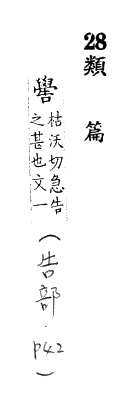 28類篇
嚳
枯沃切急告
之甚也文一
(告部·P42)